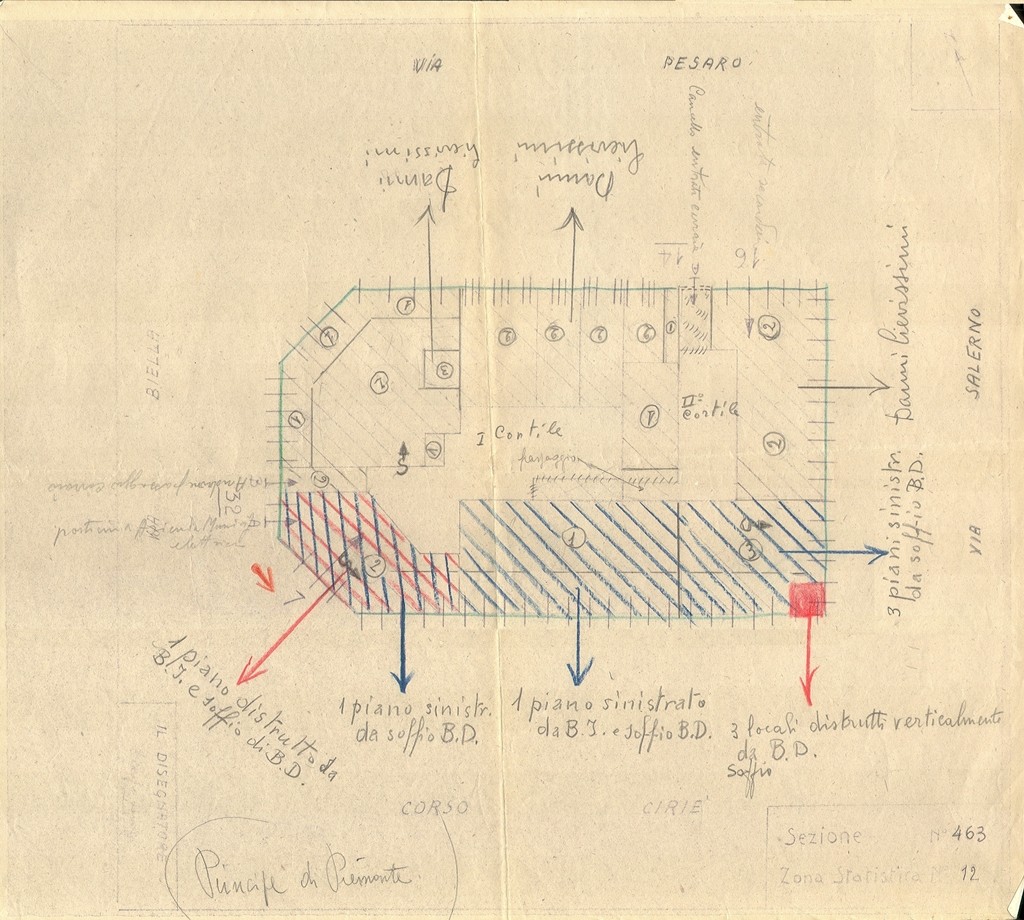 VIA PESARO.
Danni
lievissimi
Danni
lievissimi
Cancello entrata carraia
14
16
Danni lievissimi
SALERNO
VIA
BIELLA
VIA
1
1
1
2
3
1
2
2
2
2
2
1
2
1
2
I Cortile
IIº
Cortile
passaggio
32
7
2
1
3
3 piani sinistr.
da soffio B.D.
1 piano distrutto da
B.I. e soffio di B.D.
1 piano sinistr.
da soffio B.D.
1 piano sinistrato
da B.I. e soffio B.D.
3 locali distrutti verticalmente
da B.D.
soffio
CORSO CIRIE'
IL DISEGNATORE
Principe di Piemonte
Sezione Nº 463
Zona Statistica Nº 12